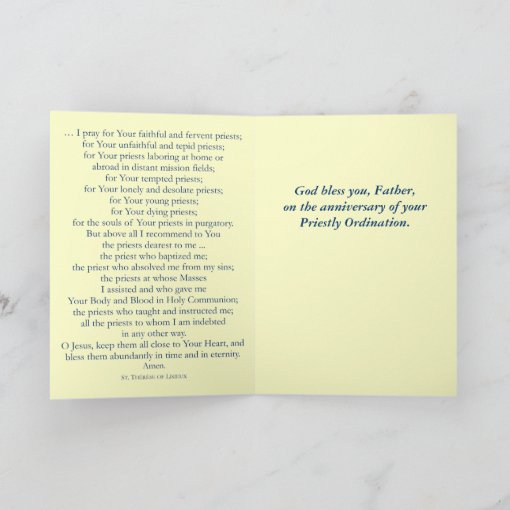 … I pray for Your faithful and fervent priests;
for Your unfaithful and tepid priests;
for Your priests laboring at home or
abroad in distant mission fields;
for Your tempted priests;
for Your lonely and desolate priests;
for Your young priests;
for Your dying priests;
for the souls of Your priests in purgatory.
But above all I recommend to You
the priests dearest to me ...
the priest who baptized me;
the priest who absolved me from my sins;
the priests at whose Masses
I assisted and who gave me
Your Body and Blood in Holy Communion;
the priests who taught and instructed me;
all the priests to whom I am indebted
in any other way.
O Jesus, keep them all close to Your Heart, and
bless them abundantly in time and in eternity.
Amen.
St. Thérèse of Lisieux
God bless you, Father,
on the anniversary of your
Priestly Ordination.